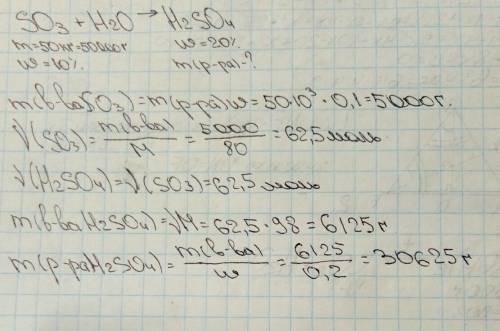 SO3 + H2O → H2SO4
m=50кг=50000г w=20%.
w=10%. m(р-ра)-?
m(в-ва SO3)=m(р-ра)w=50·10³·0,1=5000г.
√(SO3)=m(в-ва)/M=5000/80=62,5моль
√(H2SO4)=√(SO3)=62,5моль
m(в-ва H2SO4)=√M=62,5·98=6125г
m(р-ра H2SO4)=m(в-ва)/w=6125/0,2=30625г